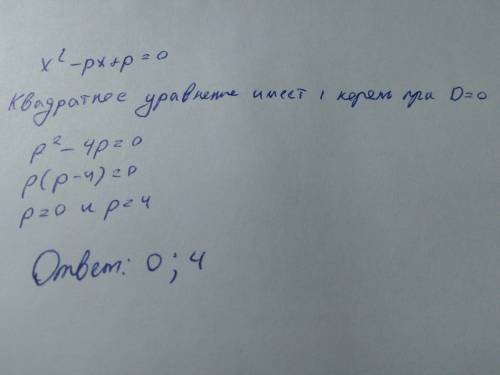 x² - px + p = 0
Квадратное уравнение имеет 1 корень при D=0
p² - 4p = 0
p(p-4) = 0
p=0 и p=4
Ответ: 0; 4